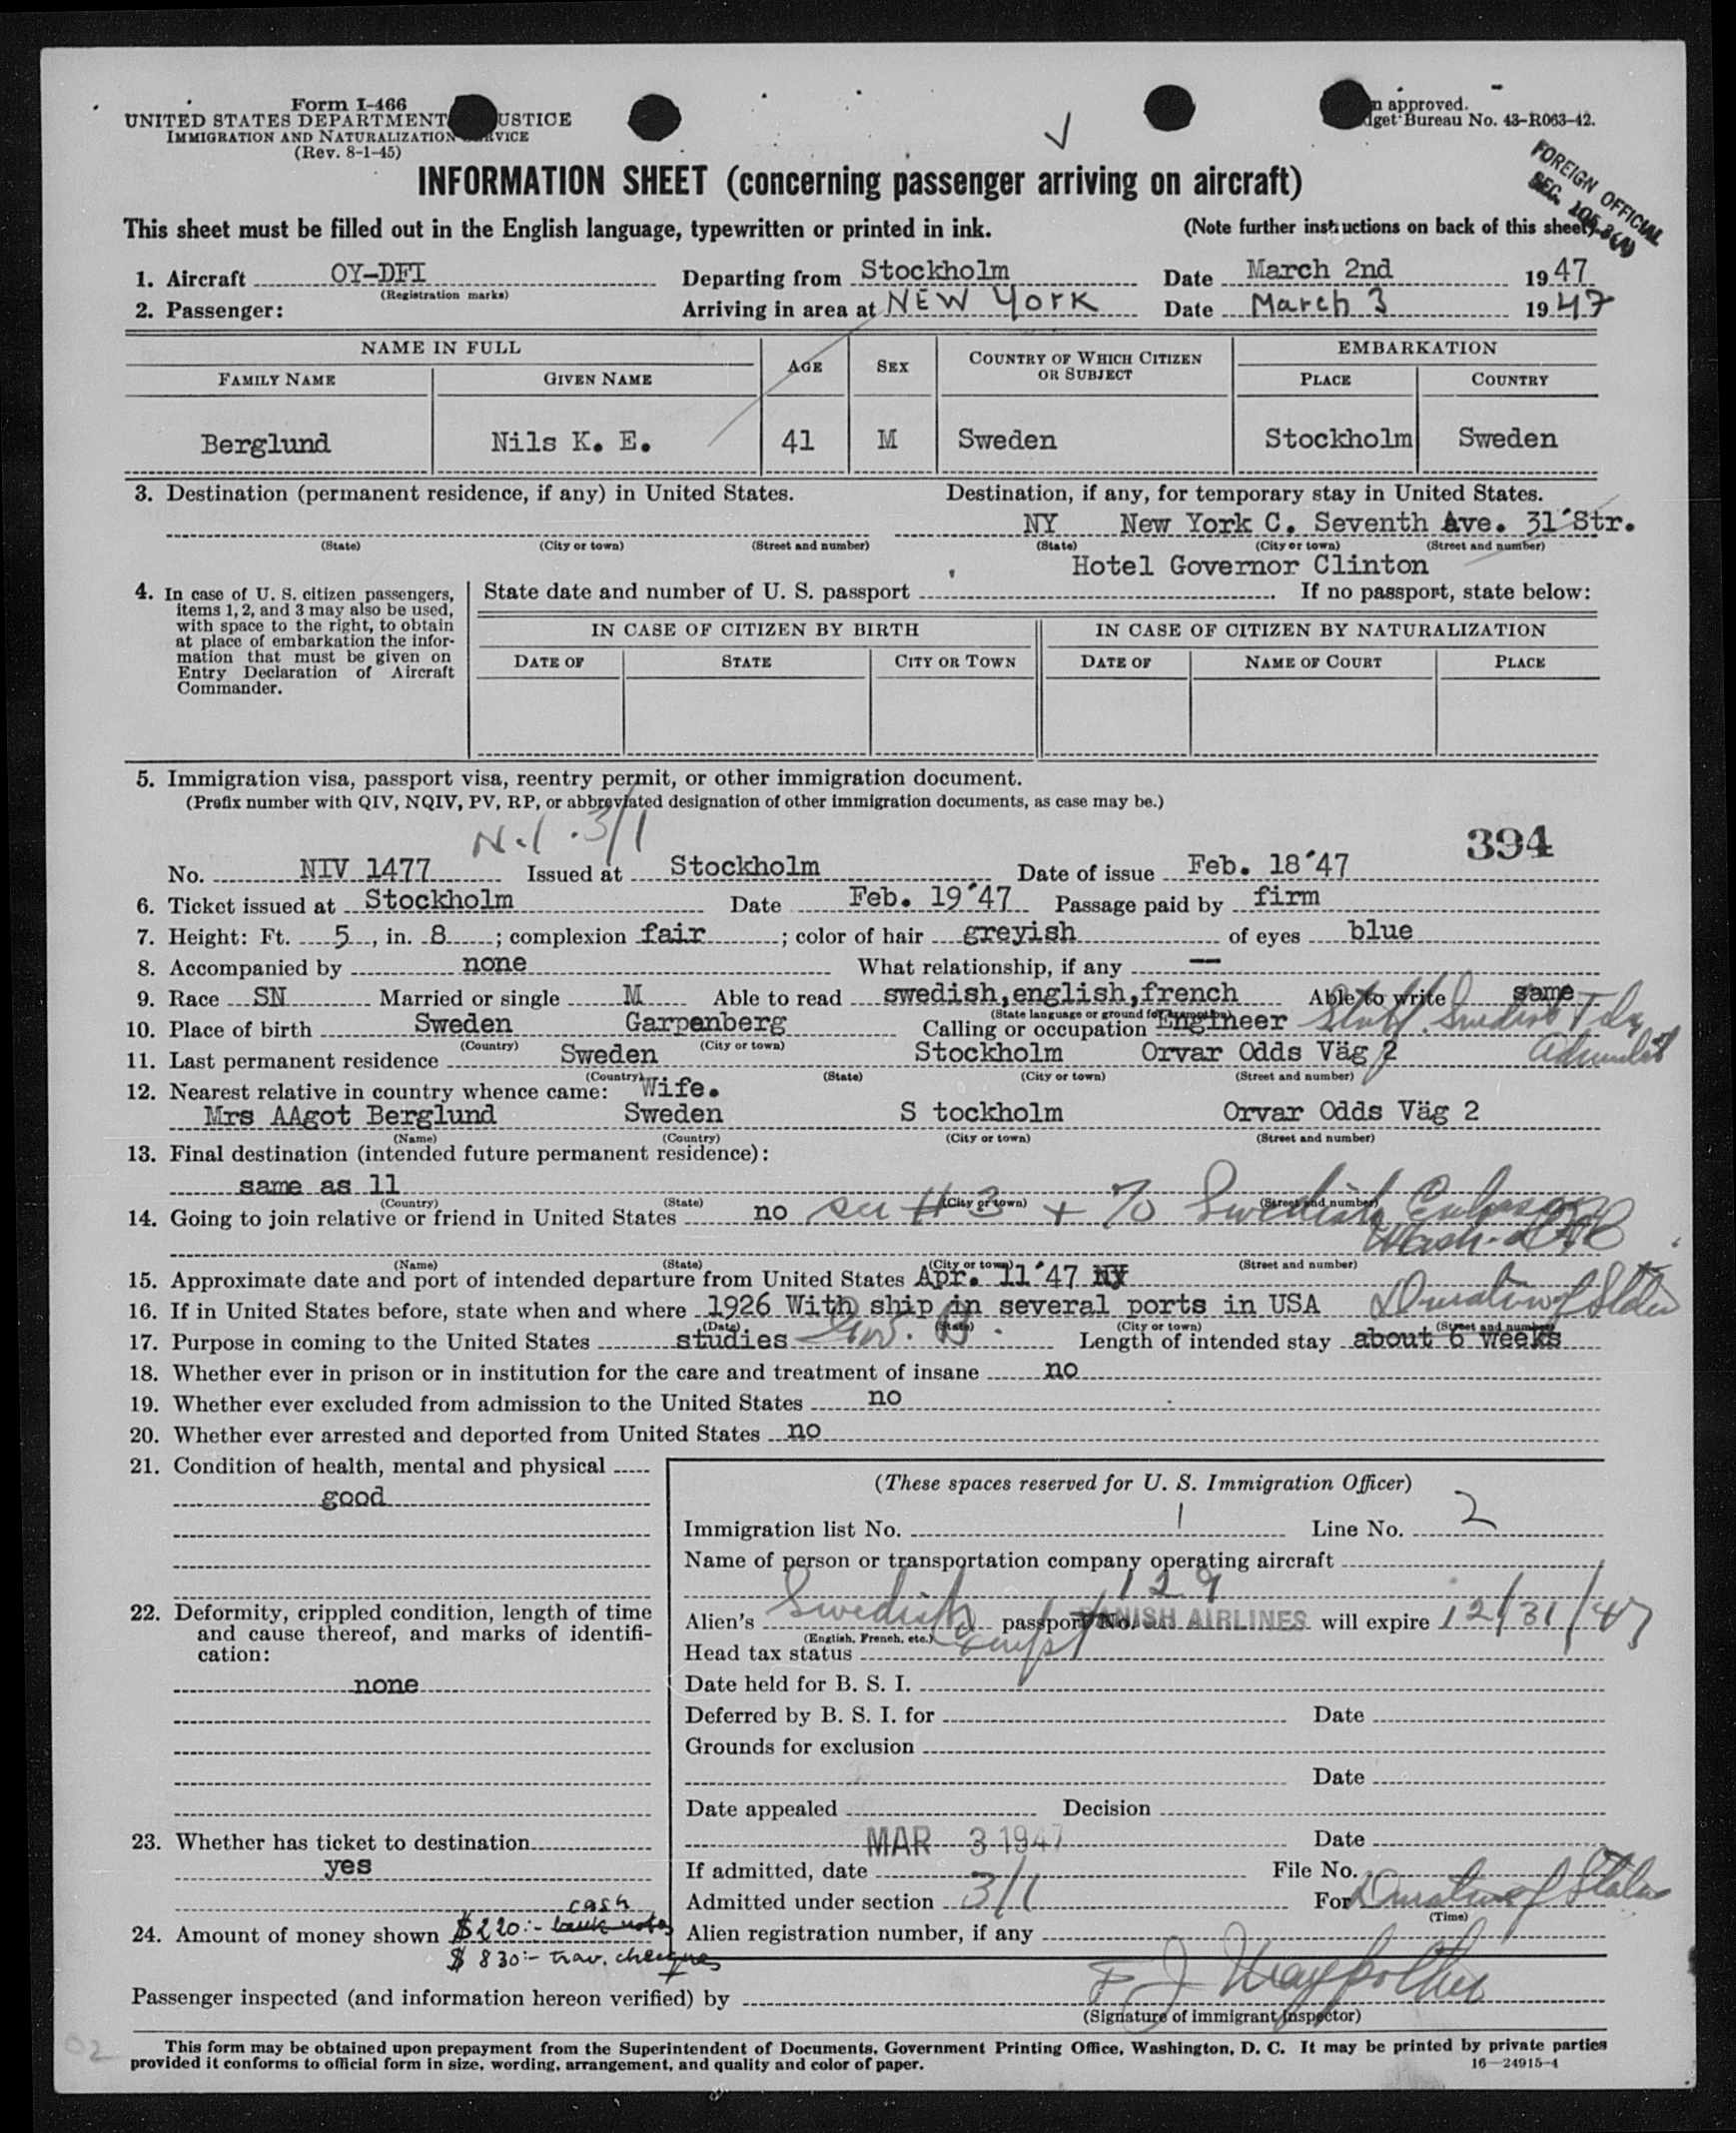 Form I-466
UNITED STATES DEPARTMENT USTICE
IMMIGRATION AND NATURALIZATION VICE
(Rev. 8-1-45)
n approved.
get Bureau No. 43-R063-42.
FOREIGN OFFICIAL
SEC.
INFORMATION SHEET (concerning passenger arriving on aircraft)
This sheet must be filled out in the English language, typewritten or printed in ink. (Note further instructions on back of this sheet)
1. Aircraft OY-DFI Departing from Stockholm Date March 2nd 1947
(Registration marks)
2. Passenger: Arriving in area at NEW YORK Date March 3 1947
NAME IN FULL AGE SEX COUNTRY OF WHICH CITIZEN OR SUBJECT EMBARKATION
FAMILY NAME GIVEN NAME PLACE COUNTRY
Berglund Nils K. E. 41 M Sweden Stockholm Sweden
3. Destination (permanent residence, if any) in United States. Destination, if any, for temporary stay in United States.
NY New York C. Seventh Ave. 31´Str.
(State) (City or town) (Street and number) (State) (City or town) (Street and number)
Hotel Governor Clinton
4. In case of U. S. citizen passengers,
items 1, 2, and 3 may also be used,
with space to the right, to obtain
at place of embarkation the infor-
mation that must be given on
Entry Declaration of Aircraft
Commander.
State date and number of U. S. passport If no passport, state below:
IN CASE OF CITIZEN BY BIRTH IN CASE OF CITIZEN BY NATURALIZATION
DATE OF STATE CITY OR TOWN DATE OF NAME OF COURT PLACE
5. Immigration visa, passport visa, reentry permit, or other immigration document.
(Prefix number with QIV, NQIV, PV, RP, or abbreviated designation of other immigration documents, as case may be.)
N.I. 3/1
394
No. NIV 1477 Issued at Stockholm Date of issue Feb. 18´47
6. Ticket issued at Stockholm Date Feb. 19´47 Passage paid by firm
7. Height: Ft. 5, in. 8; complexion fair; color of hair greyish of eyes blue
8. Accompanied by none What relationship, if any —
9. Race SN Married or single M Able to read swedish,english,french Able to write same
(State language or ground for exemption)
10. Place of birth Sweden Garpenberg Calling or occupation Engineer Staff Swedish
(Country) (City or town)
11. Last permanent residence Sweden Stockholm Orvar Odds Väg 2
(Country) (State) (City or town) (Street and number)
12. Nearest relative in country whence came: Wife.
Mrs AAgot Berglund Sweden S tockholm Orvar Odds Väg 2
(Name) (Country) (City or town) (Street and number)
13. Final destination (intended future permanent residence):
same as 11
(Country) (State) (City or town) (Street and number)
14. Going to join relative or friend in United States no see #3 + % Swedish Embassy
Wash.
(Name) (State) (City or town) (Street and number)
15. Approximate date and port of intended departure from United States Apr. 11´47 NY
16. If in United States before, state when and where 1926 With ship in several ports in USA Duration of Status
(Date) (State) (City or town) (Street and number)
17. Purpose in coming to the United States studies Length of intended stay about 6 weeks
18. Whether ever in prison or in institution for the care and treatment of insane no
19. Whether ever excluded from admission to the United States no
20. Whether ever arrested and deported from United States no
21. Condition of health, mental and physical
good
22. Deformity, crippled condition, length of time
and cause thereof, and marks of identifi-
cation:
none
23. Whether has ticket to destination
yes
cash
24. Amount of money shown $220:- bank notes
$ 830:- trav. cheques
(These spaces reserved for U. S. Immigration Officer)
Immigration list No. 1 Line No. 2
Name of person or transportation company operating aircraft
129
Alien's Swedish passport No. DANISH AIRLINES will expire 12/31/47
(English, French, etc.)
Head tax status exempt
Date held for B. S. I.
Deferred by B. S. I. for Date
Grounds for exclusion
Date
Date appealed Decision
MAR 3 1947 Date
If admitted, date File No.
Admitted under section 3/1 For Duration of Status
(Time)
Alien registration number, if any
Passenger inspected (and information hereon verified) by
(Signature of immigrant inspector)
02
This form may be obtained upon prepayment from the Superintendent of Documents, Government Printing Office, Washington, D. C. It may be printed by private parties
provided it conforms to official form in size, wording, arrangement, and quality and color of paper. 16—24915-4